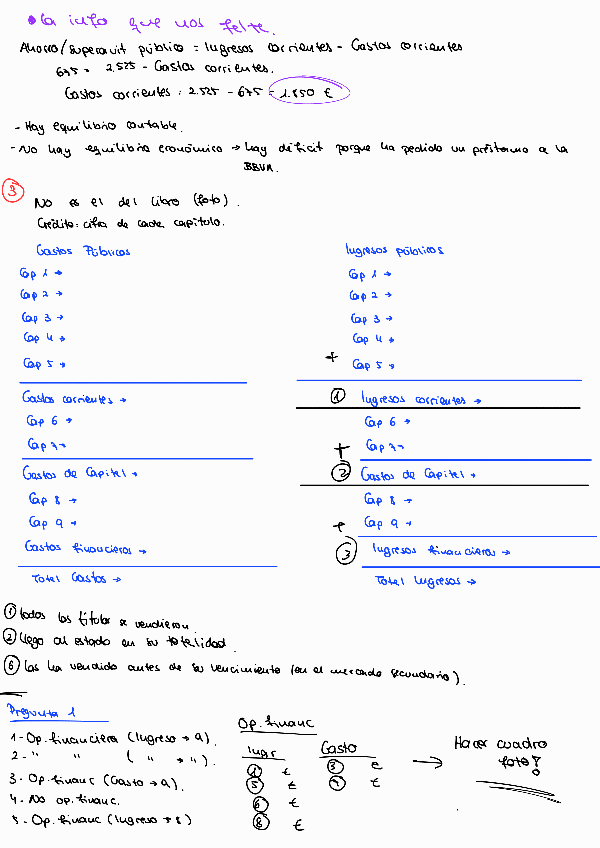 • La info que nos falte.
Ahorro/superavit público = Ingresos corrientes - Gastos corrientes
675 = 2.525 - Gastos corrientes.
Gastos corrientes = 2.525 - 675 = 1.850 €
- Hay equilibrio contable.
- No hay equilibrio económico → hay déficit porque ha pedido un préstamo a la
BBVA.
③ No es el del libro (foto).
Crédito: cifra de cada capítulo.
Gastos Públicos
Cap 1 →
Cap 2 →
Cap 3 →
Cap 4 →
Cap 5 →
Gastos corrientes →
Cap 6 →
Cap 7 →
Gastos de Capitel →
Cap 8 →
Cap 9 →
Gastos financieros →
Total Gastos →
Ingresos públicos
Cap 1 →
Cap 2 →
Cap 3 →
Cap 4 →
+ Cap 5 →
① Ingresos corrientes →
Cap 6 →
+ Cap 7 →
② Gastos de Capitel →
Cap 8 →
+ Cap 9 →
③ Ingresos financieros →
Total Ingresos →
① todos los títulos se vendieron
② llego al estado en su totalidad.
⑥ Las ha vendido antes de su vencimiento (en el mercado secundario).
Pregunta 1
1- Op. financiera (Ingreso → 9).
2- " " ( " → ").
3- Op. financ (Gasto → 9).
4- No op. financ.
5- Op. financ (Ingreso → 8)
Op. financ
Ingr Gasto
① € ③ €
⑤ € ⑨ €
⑥ €
⑧ €
→ Hacer cuadro
foto!